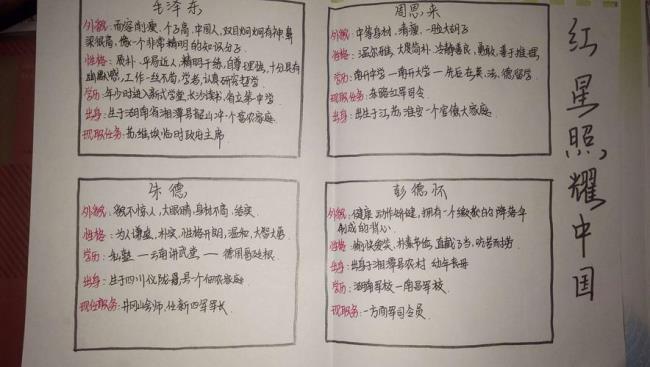 毛泽东
外貌：面容削瘦，个子高，中国人，双目炯炯有神鼻
梁很高，像一个非常精明的知识分子
性格：质朴，平易近人，精明干练，自尊理强，十分具有
幽默感，工作一丝不苟，学者，认真研究哲学
学历：年少时进入新式学堂，长沙读书，省立第一中学
出身：生于湖南省湘潭县韶山冲一个富农家庭
现职任务：苏维埃临时政府主席
周恩来
外貌：中等身材，清瘦，一脸大胡子
性格：温尔雅，大度简朴，冷静善良，勇敢，善于推理
学历：南开中学一南开大学一先后在英、法、德留学
现职任务：东路红军司令
出身：出生于江苏淮安一个官僚大家庭
朱德
外貌：貌不惊人，大眼睛，身材不高，结实
性格：为人谦虚，朴实，性格开朗，温和，大智大勇
学历：私塾一云南讲武堂一德国
出身：生于四川仪陇县一个佃农家庭
现任职务：井冈会师，任新四军军长
彭德怀
外貌：健康，动作矫健，拥有一个缴获的降落伞
制成的背心
性格：愉快爱笑，朴素节俭，直截了当，吃苦耐劳
出身：出身于湘潭县农村 幼年丧母
学历：湖南军校一南昌军校
现职务：一方面军司令员
红星照耀中国